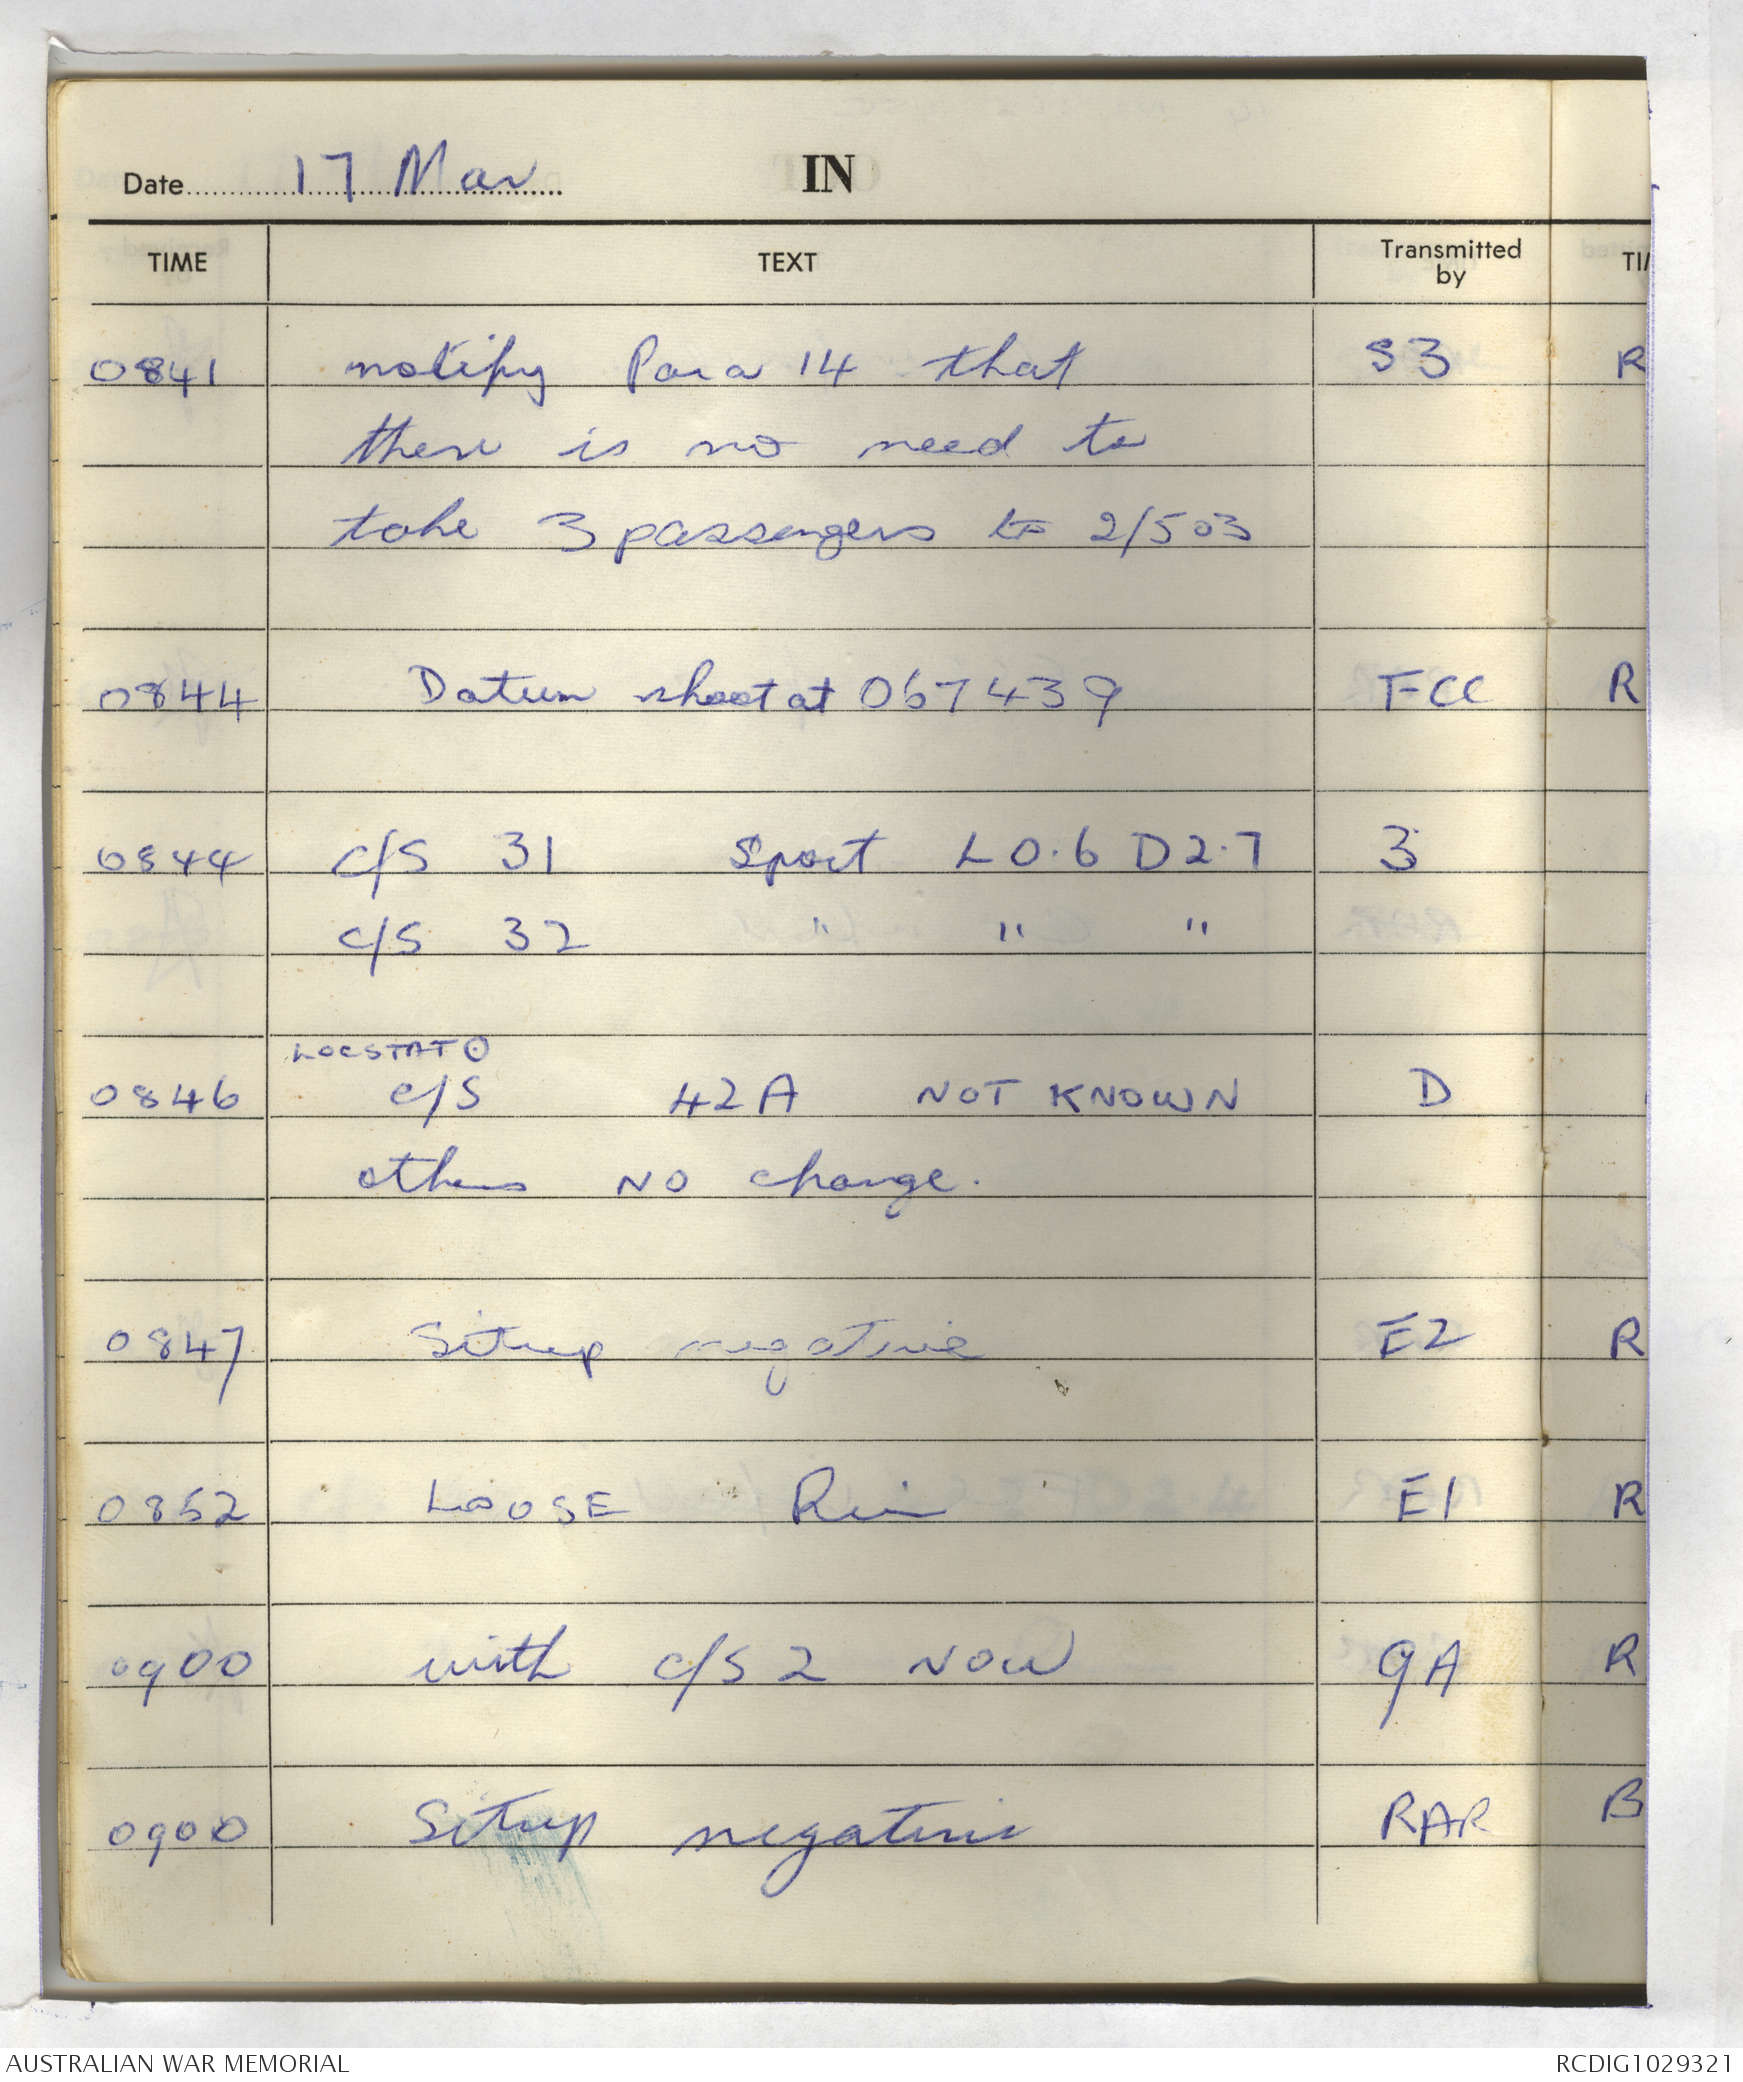 Date 17 Mar IN
TIME TEXT Transmitted by TI
0841 notify Para 14 that S3 R
there is no need to
take 3 passengers to 2/503
0844 Datum shoot at 067439 FCC R
0844 C/S 31 Sport L0.6 D2.7 3
C/S 32 " " "
LOCSTAT
0846 C/S 42A NOT KNOWN D
others NO change.
0847 Sitrep negative E2 R
0852 LOOSE E1 R
0900 with C/S 2 NOW 9A R
0900 Sitrep negative RAR B
AUSTRALIAN WAR MEMORIAL RCDIG1029321